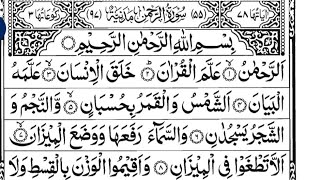 اٰیَاتُهَا ۷۸ (۵۵) سُوْرَةُ الرَّحْمٰنِ مَدَنِیَّةٌ (۹۷) رُكُوْعَاتُهَا ۳
بِسْمِ اللّٰهِ الرَّحْمٰنِ الرَّحِیْمِ
اَلرَّحْمٰنُ ۙ۱ عَلَّمَ الْقُرْاٰنَ ؕ۲ خَلَقَ الْاِنْسَانَ ۙ۳ عَلَّمَهُ
الْبَیَانَ ۴ اَلشَّمْسُ وَ الْقَمَرُ بِحُسْبَانٍ ۪۵ وَّ النَّجْمُ وَ
الشَّجَرُ یَسْجُدٰنِ ۶ وَ السَّمَآءَ رَفَعَهَا وَ وَضَعَ الْمِیْزَانَ ۙ۷
اَلَّا تَطْغَوْا فِی الْمِیْزَانِ ۸ وَ اَقِیْمُوا الْوَزْنَ بِالْقِسْطِ وَ لَا